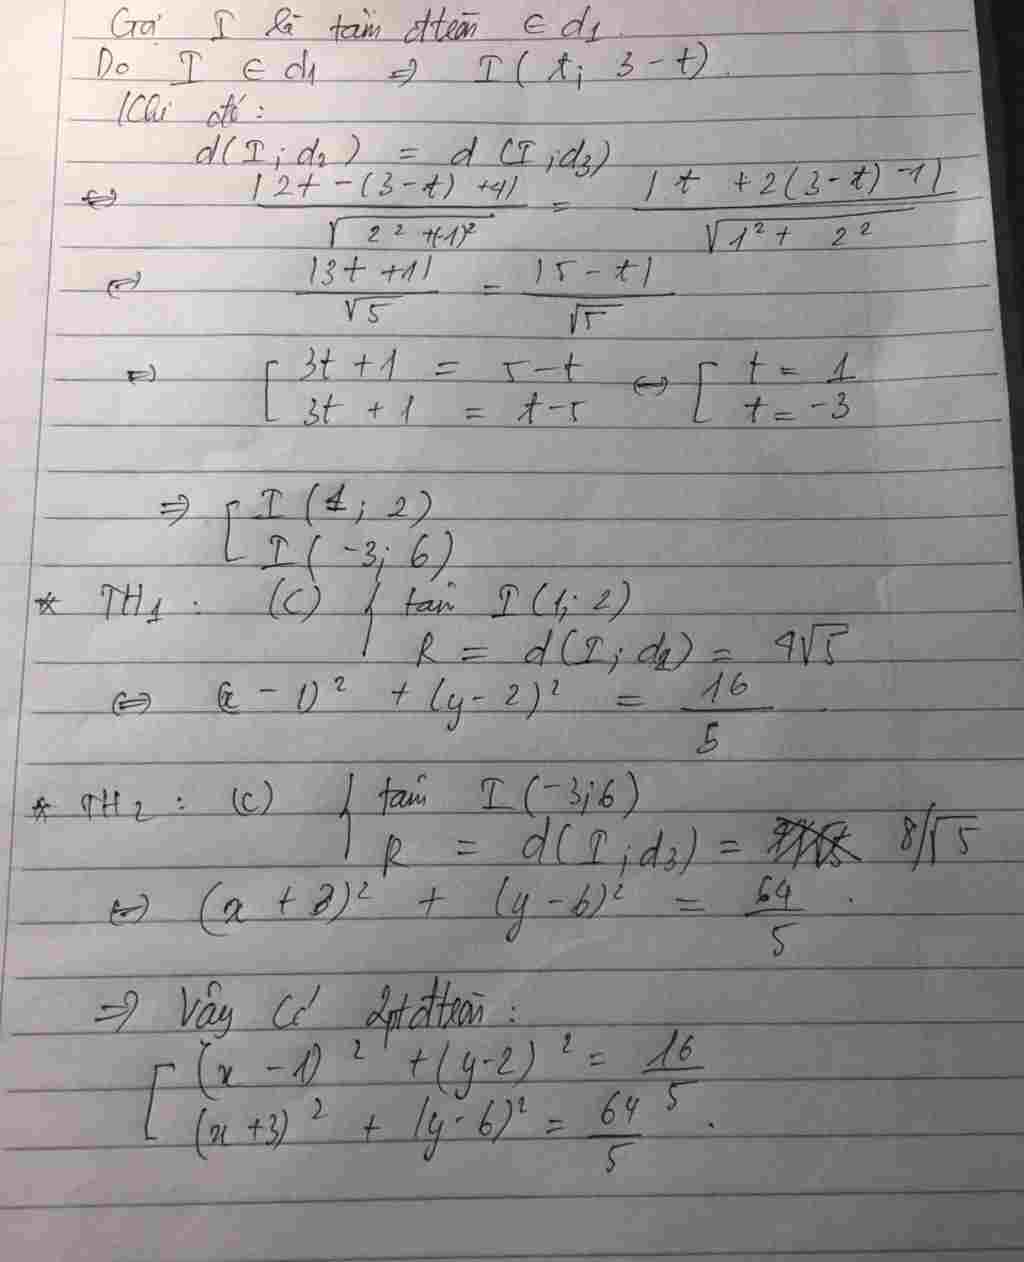 Gọi I là tâm đtròn ∈ d1.
Do I ∈ d1 ⇒ I(t; 3-t).
Khi đó:
d(I;d2) = d(I;d3)
⇔ |2t-(3-t)+4| / √(2²+(-1)²) = |t+2(3-t)-1| / √(1²+2²)
⇔ |3t+1| / √5 = |5-t| / √5
⇔ [ 3t+1 = 5-t ⇔ [ t = 1
3t+1 = t-5 t = -3
⇒ [ I(1; 2)
I(-3; 6)
* TH1: (C) { tâm I(1; 2)
R = d(I; d2) = 4√5
⇔ (x-1)² + (y-2)² = 16/5
* TH2: (C) { tâm I(-3;6)
R = d(I;d3) = 8/√5
⇔ (x+3)² + (y-6)² = 64/5.
⇒ Vậy có 2pt đtròn:
[ (x-1)² + (y-2)² = 16/5
(x+3)² + (y-6)² = 64/5.